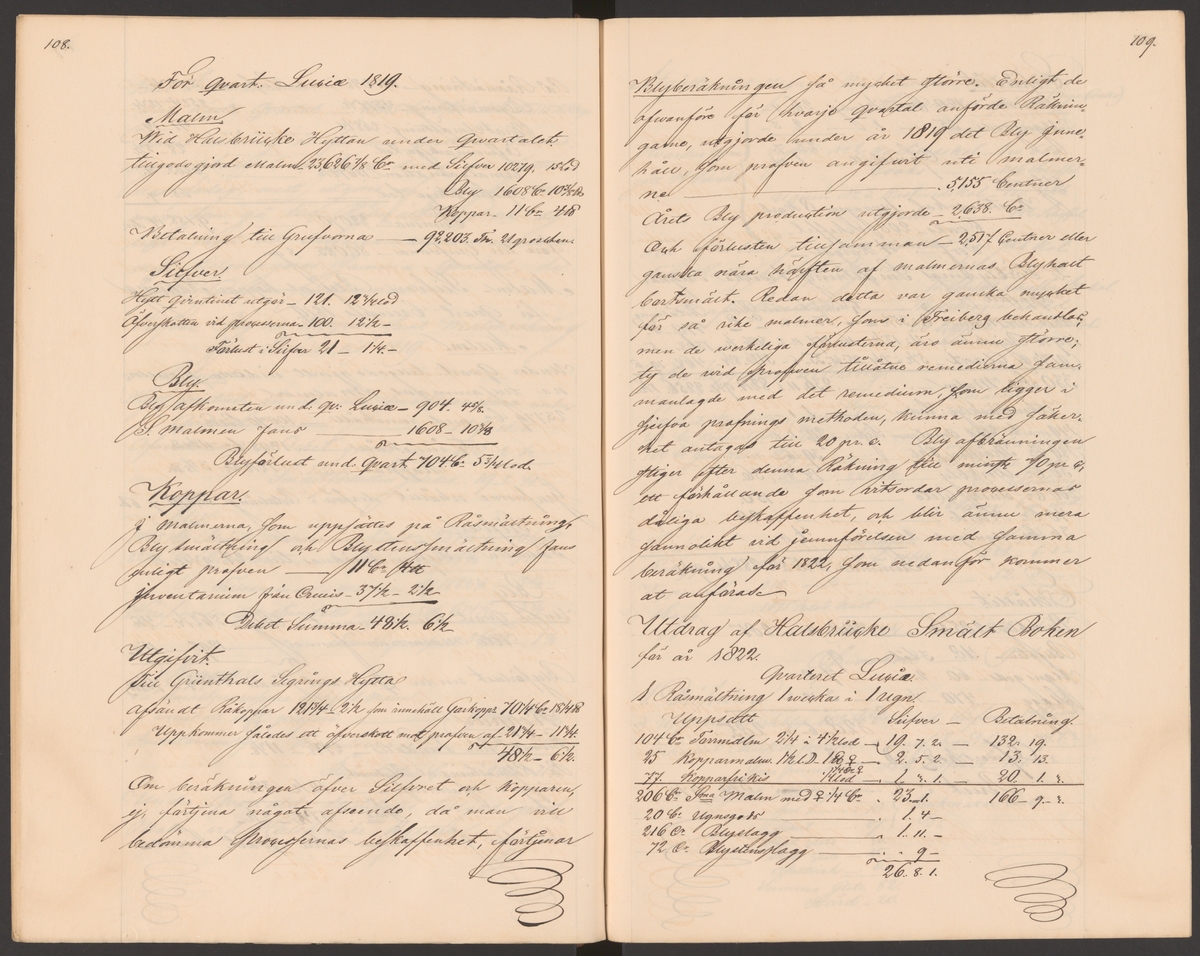 108.
För qvart. Luciæ 1819.
Malm
Wid Halsbrücke Hyttan under Qvartalet
tillgodogjord Malm 23,626 7/8 Ctr med Silfver 10219, 15 lod
Bly 1608 Ctr
Koppar - 11 Ctr
Betalning till Grufvorna — 92,203. Th. 21 groschen
Silfver
Hytt Gevinnst utgör - 121. 12 3/4 lod
Öfverskotten vid processerna - 100. 12 1/2 -
Förlust i Silfver 21 - 1/4 -
Bly.
Bly afkomsten und. qv: Luciæ - 904. 4 5/8.
I malmen fans — 1608 - 10 3/8
Blyförlust und. Qvart. 704 Ctr 5 3/4 lod.
Koppar.
I malmerna, som uppsattes på Råsmältning,
Blysmältning och Blystenssmältning fans
enligt profven — 11 Ctr
Inventarium från Crucis - 37 1/2 - 2 1/2
Debet Summa - 48 1/2. 6 1/2
Utgifvit.
Till Grünthals Segrings Hytta
afsändt Råkoppar 121 3/4 - 2 1/2 som innehöll Garkoppar 70 1/4 Ctr
Uppkommer således ett öfverskott mot profven af - 21 3/4 - 11 3/4.
48 1/2 - 6 1/2.
Om beräkningen öfver Silfvret och Kopparen,
ej förtjena något afseende, då man vill
bedömma Processernas beskaffenhet, förtjenar
109.
Blyberäkningen så mycket större. Enligt de
ofvanföre för hvarje Qvartal anförde Räknin-
garne, utgjorde under år 1819 det Bly inne-
håll, som profven angifvit uti malmer-
ne — 5,155 Centner
Årets Bly production utgjorde - 2,638. Ctr
Och förlusten tillsamman - 2,517 Centner eller
ganska nära hälften af malmernas Blyhalt
bortsmält. Redan detta var ganska mycket
för så rike malmer, som i Freiberg behandlas,
men de werkeliga förlusterna, äro ännu större,
ty de vid profven tillåtne remedierna sam-
manlagde med det remedium, som ligger i
sjelfva profnings methoden, kunna med säker-
het antagas till 20 pr. c. Bly afbränningen
stiger efter denna Räkning till minst 70 pr c,
ett förhållande som vitsordar processernas
dåliga beskaffenhet, och blir ännu mera
sannolikt vid jemnförelsen med samma
beräkning för 1822, som nedanför kommer
at anföras.
Utdrag af Halsbrücke Smält Boken
för år 1822.
Qvarteret Luciæ.
1 Råsmältning 1 wecka i 1 ugn.
Uppsatt Silfver - Betalning.
104 Ctr Torrmalm 2 1/4 à 4 1/2 lod - 19. 7. 2. — 132. 19.
25 Kopparmalm 1 1/2 l.D. — 2. 5. 2. — 13. 13.
77. Kopparfri kis 1/4 lod — 20. 1.
206 Ctr Sma Malm med ♀ 1/4 Ctr . 23 166 - 9
20 Ctr Ugnsgods — 1. 4 -
216 Ctr Blyslagg — 1. 11. -
72 Ctr Blystensslagg — 9 -
26. 8. 1.